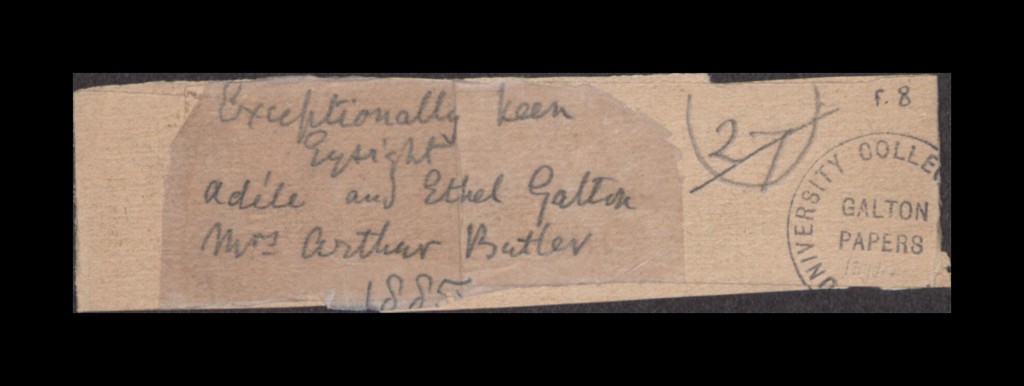 Exceptionally keen
Eysight
Adéle and Ethel Galton
Mrs Arthur Butler
1885
27
f. 8
UNIVERSITY COLLE
GALTON
PAPERS